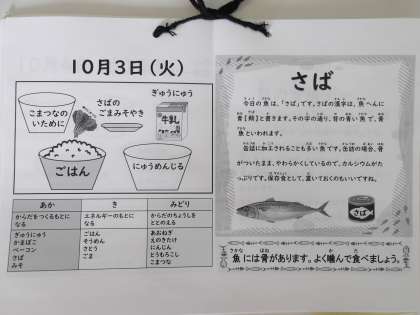 10月3日(火)
ぎゅうにゅう
こまつなの
いために
さばの
ごまみそやき
牛乳
ごはん
にゅうめんじる
あか
き
みどり
からだをつくるもとに
なる
エネルギーのもとに
なる
からだのちょうしを
ととのえる
ぎゅうにゅう
かまぼこ
ベーコン
さば
みそ
ごはん
そうめん
さとう
ごま
あおねぎ
えのきたけ
にんじん
とうもろこし
こまつな
さば
今日の魚は、「さば」です。さばの漢字は、魚へんに
青【鯖】と書きます。その字の通り、背の青い魚で、青
魚といわれます。
缶詰に加工されることも多い魚です。缶詰の場合、骨
がついたまま、やわらかくしているので、カルシウムがた
っぷりです。保存食として、置いておくのもいいですね。
さば
魚には骨があります。よく噛んで食べましょう。